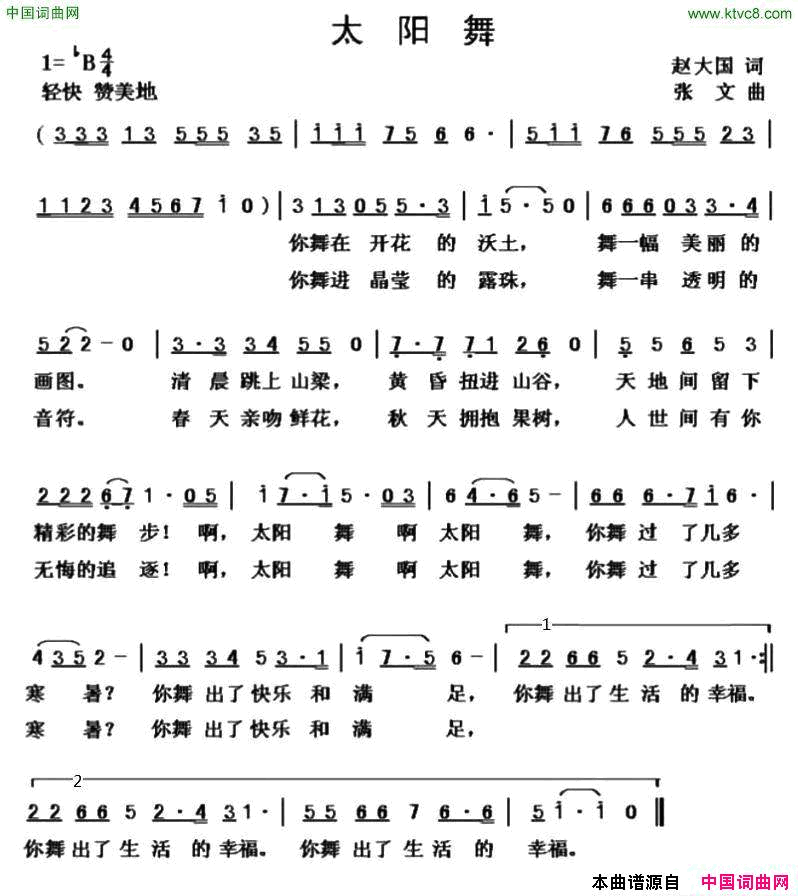 中国词曲网 www.ktvc8.com
太 阳 舞
1= ♭B 4/4
赵大国 词
轻快 赞美地
张 文 曲
( 3 3 3 1 3 5 5 5 3 5 | i i i 7 5 6 6 · | 5 i i 7 6 5 5 5 2 3 |
1 1 2 3 4 5 6 7 i 0 ) | 3 1 3 0 5 5 · 3 | i 5 · 5 0 | 6 6 6 0 3 3 · 4 |
你舞在 开花 的 沃土, 舞一幅 美丽 的
你舞进 晶莹 的 露珠, 舞一串 透明 的
5 2 2 - 0 | 3 · 3 3 4 5 5 0 | 7 · 7 7 1 2 6 0 | 5 5 6 5 3 |
画图。 清 晨 跳上 山梁, 黄 昏 扭进 山谷, 天 地 间 留 下
音符。 春 天 亲吻 鲜花, 秋 天 拥抱 果树, 人 世 间 有 你
2 2 2 6 7 1 · 0 5 | i 7 · i 5 · 0 3 | 6 4 · 6 5 - | 6 6 6 6 · 7 i 6 · |
精彩的舞 步! 啊, 太阳 舞 啊 太阳 舞, 你舞 过 了几多
无悔的追 逐! 啊, 太阳 舞 啊 太阳 舞, 你舞 过 了几多
1
4 3 5 2 - | 3 3 3 4 5 3 · 1 | i 7 · 5 6 - | 2 2 6 6 5 2 · 4 3 1 · :‖
寒 暑? 你舞 出了 快乐 和 满 足, 你舞 出了 生 活 的 幸福。
寒 暑? 你舞 出了 快乐 和 满 足,
2
2 2 6 6 5 2 · 4 3 1 · | 5 5 6 6 7 6 · 6 | 5 i · i 0 ‖
你舞 出了 生 活 的 幸福。 你舞 出了 生 活 的 幸福。
本曲谱源自 中国词曲网